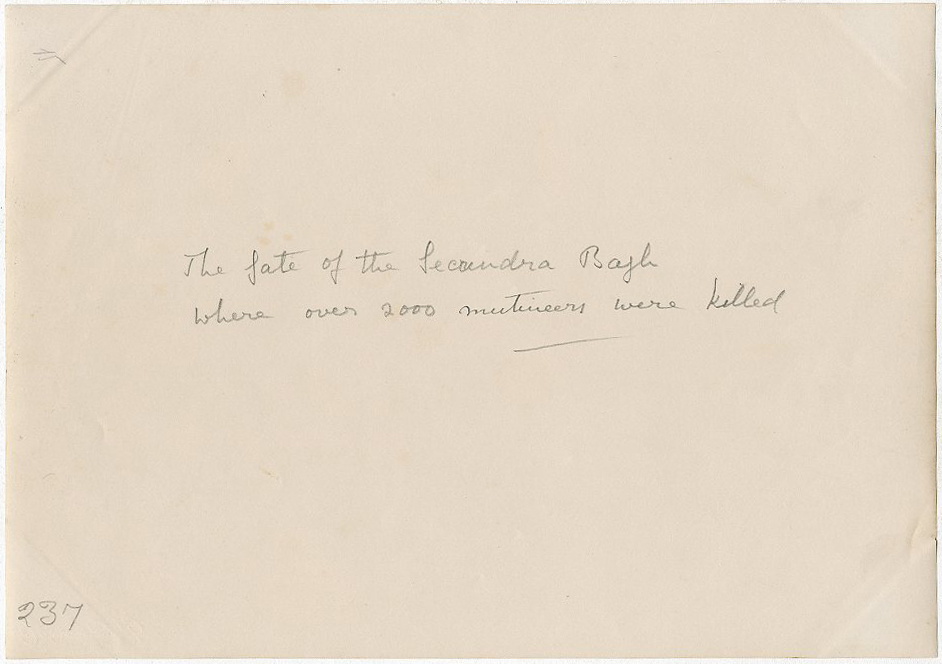 The Gate of the Secundra Bagh
where over 2000 mutineers were killed
237